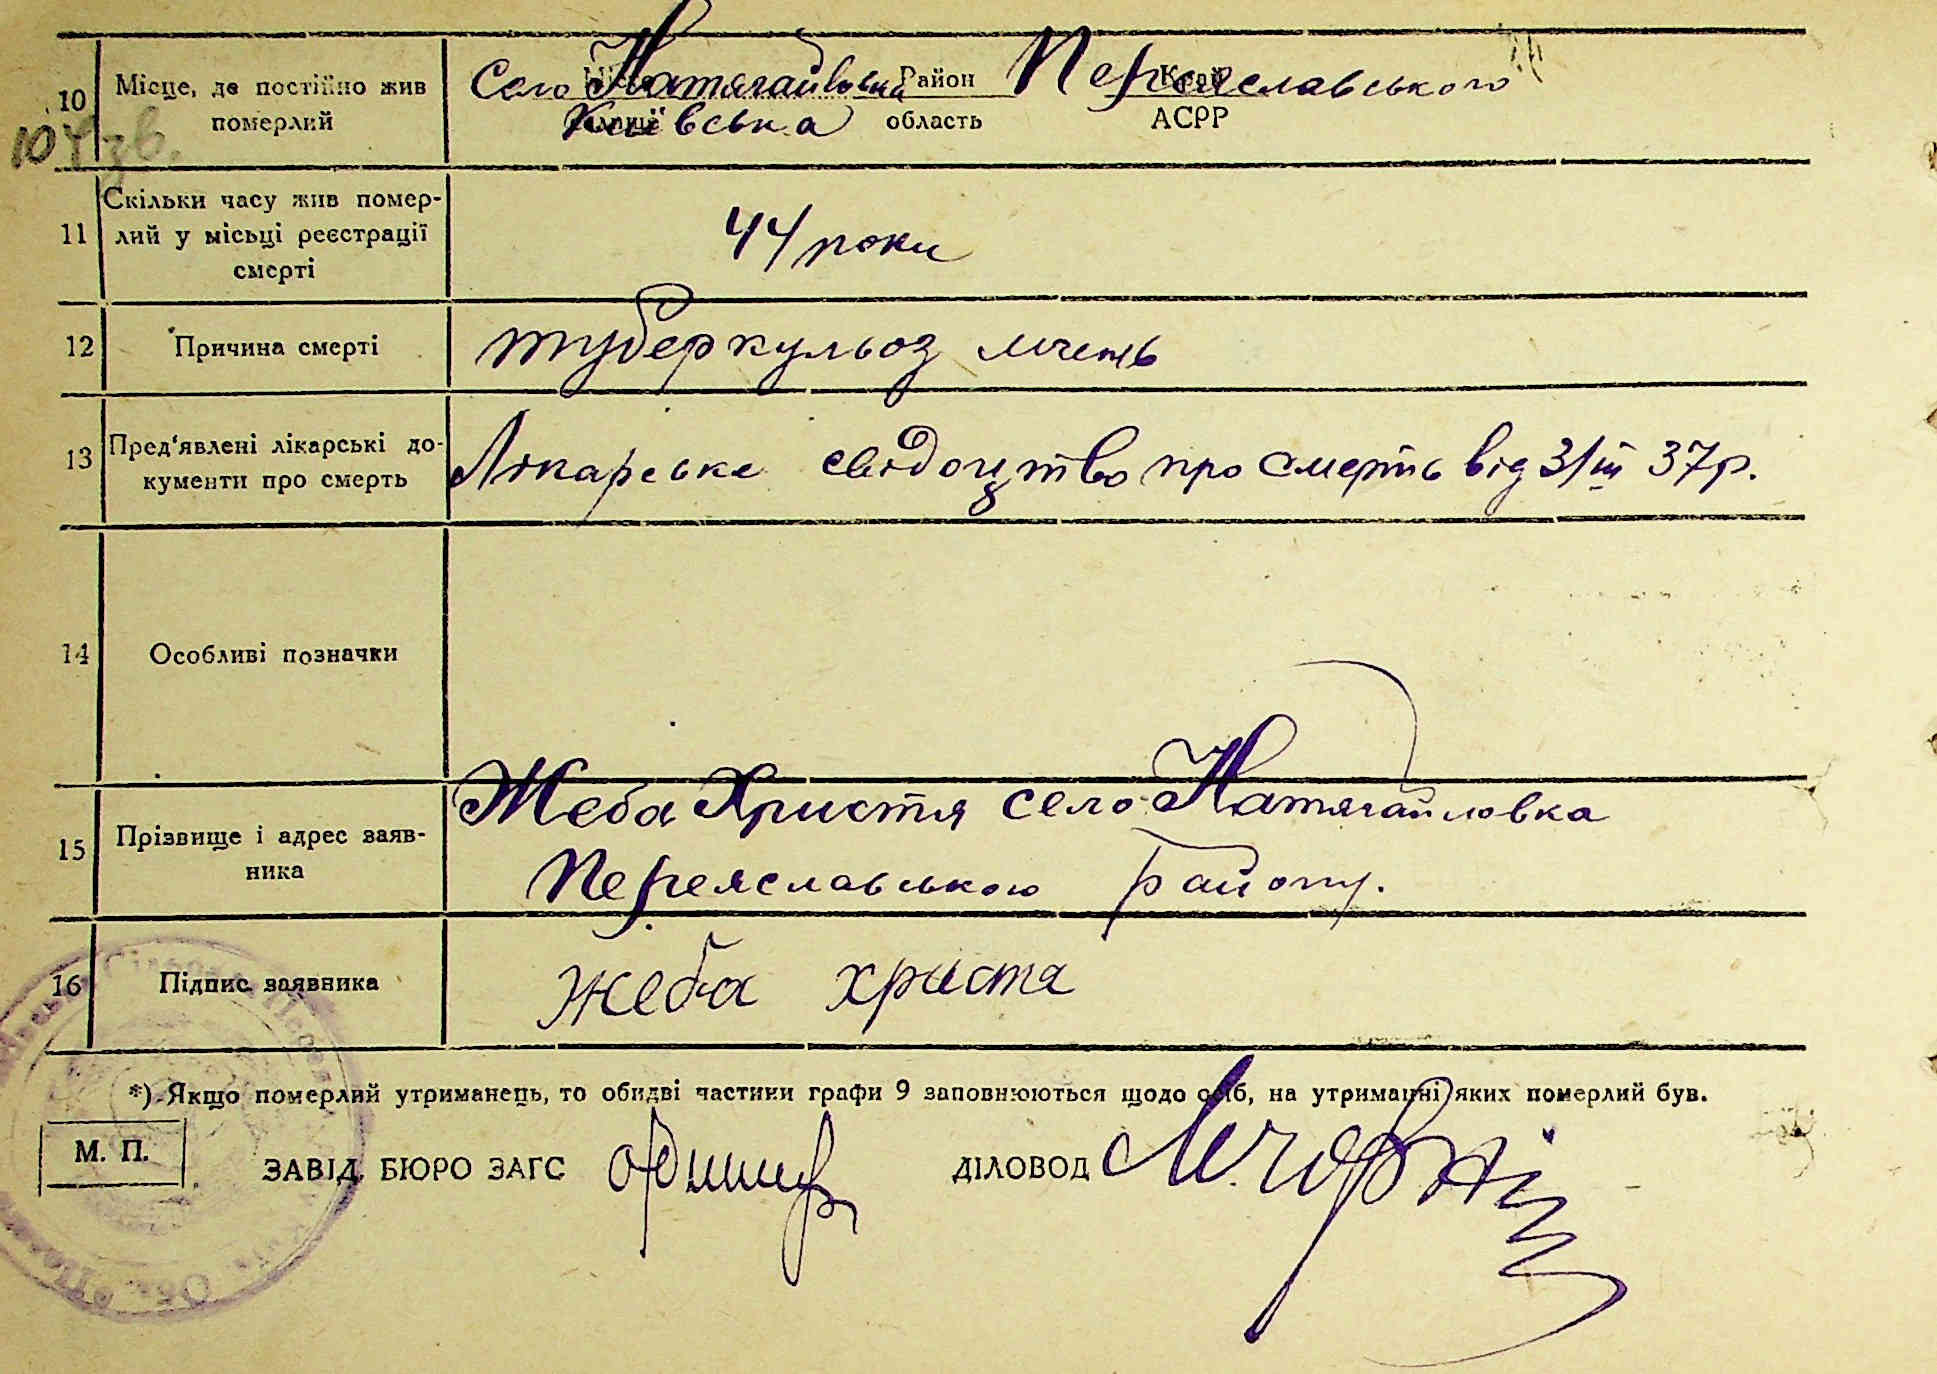 10 Місце, де постійно жив померлий
Село Натягайловка Район Переяславського Край
Київська область АСРР
104 зв.
11 Скільки часу жив помер-
лий у місьці реєстрації
смерті
44 роки
12 Причина смерті
туберкульоз лічень
13 Пред'явлені лікарські до-
кументи про смерть
Лікарське свідоцтво про смерть від 3/III 37р.
14 Особливі позначки
15 Прізвище і адрес заяв-
ника
Жеба Христя село Натягайловка
Переяславського району.
16 Підпис заявника
жеба христа
*) Якщо померлий утриманець, то обидві частини графи 9 заповнюються щодо осіб, на утриманні яких померлий був.
М. П.
ЗАВІД. БЮРО ЗАГС
ДІЛОВОД